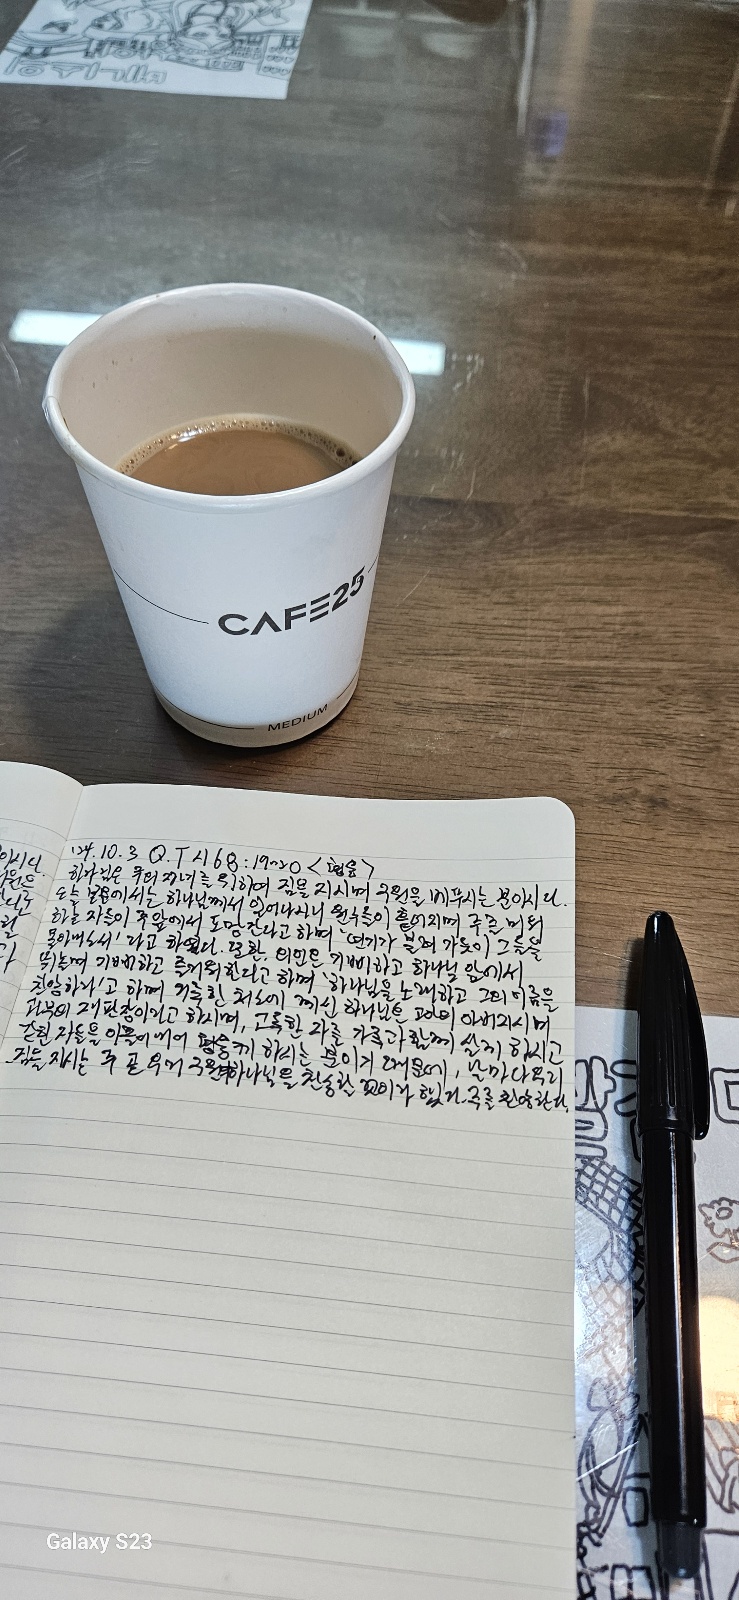 CAFE25
MEDIUM
'24.10.3 Q.T 시68:19~20 <형통>
하나님은 주의 자녀를 위하여 짐을 지시며 구원을 베푸시는 분이시다.
오늘 본문에서는 하나님께서 일어나시니 원수들이 흩어지며 주를 미워
하는 자들이 주 앞에서 도망간다고 하며 '연기가 불려 가듯이 그들을
몰아내소서'라고 하였다. 또한, 의인은 기뻐하고 하나님 앞에서
뛰놀며 기뻐하고 즐거워한다고 하며 '하나님을 노래하고 그의 이름을
찬양하라'고 하며 거룩한 처소에 계신 하나님은 고아의 아버지시며
과부의 재판장이라고 하시며, 고독한 자를 가족과 함께 살게 하시고
갇힌 자들을 이끌어 내어 형통케 하시는 분이기 때문에, 날마다 우리
짐을 지시는 주 곧 우리 구원의 하나님을 찬송할 것이라 했다. 주를 찬양한다.
Galaxy S23